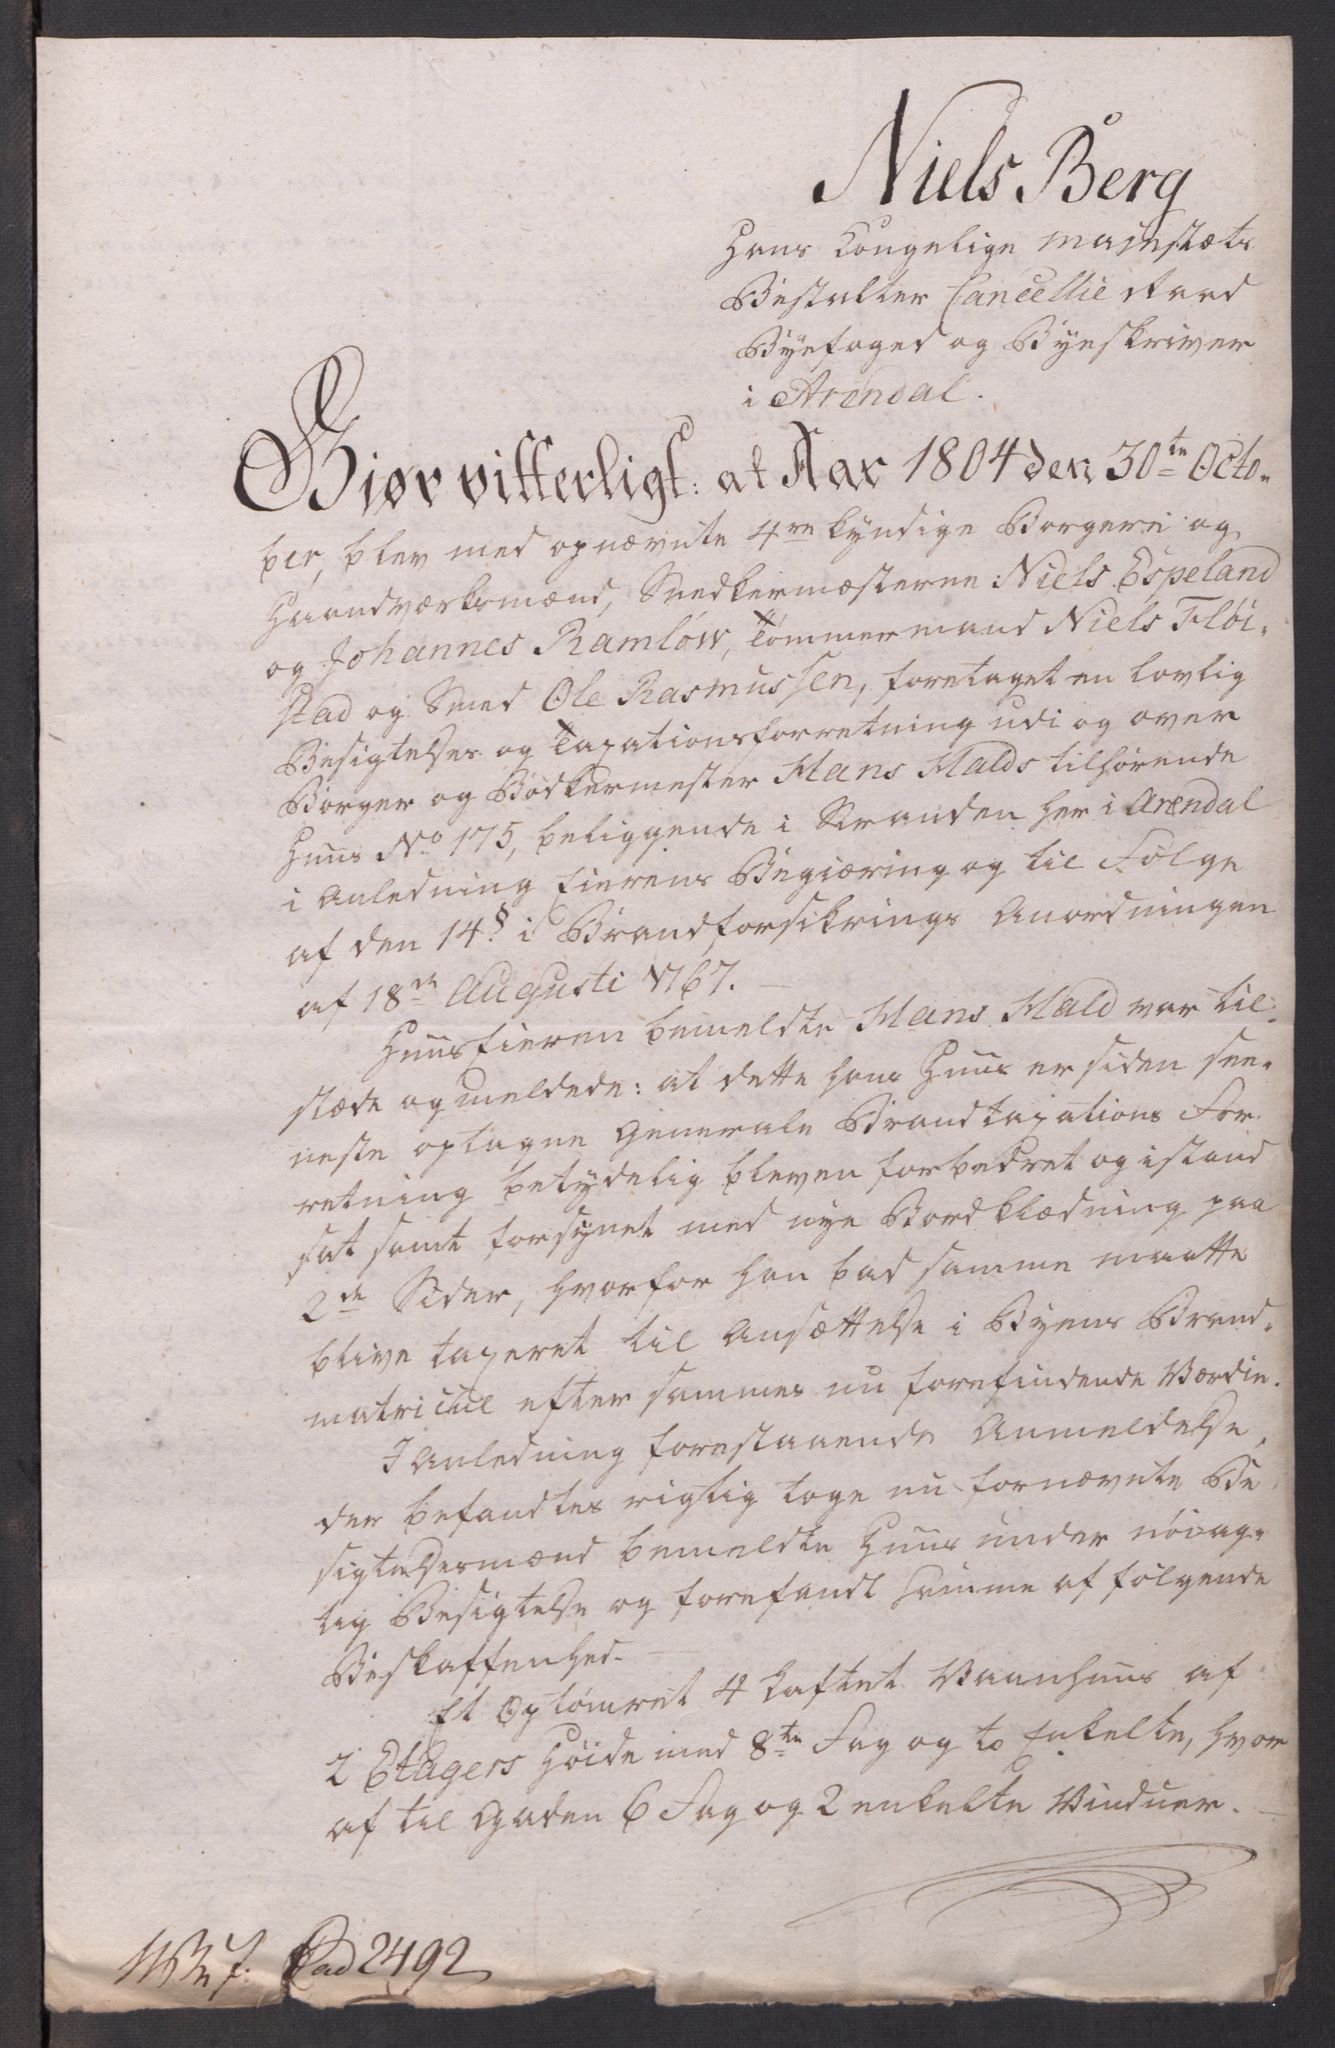 Niels Berg
Hans Kongelige Majestæts
Bestalter Cancellie Raad
Byefoged og Byeskriver
i Arendal.
Giør vitterligt: at Aar 1804 den 30te Octo-
ber, blev med opnævnte 4re kyndige Borgere og
Haandværksmænd, Snedkermesterne: Niels Espeland
og Johannes Ramlów, Tømmermand Niels Fløi-
stad og Smed Ole Rasmussen, foretaget en lovlig
Besigtelses og Taxationsforretning udi og over
Borger og Bødkermester Hans Halds tilhørende
Huus No 175, beliggende i Stranden her i Arendal
i Anledning Eierens Begiæring og til Følge
af den 14 § i Brandforsikrings Anordningen
af 18de Augusti 1767. —
Huuseieren bemeldte Hans Hald var til-
stæde og meldede: at dette hans Huus er siden see-
neste optagne Generale Brandtaxations For-
retning betydelig bleven forbedret og istand
sat samt forsynet med nye Bordklædning paa
2de Sider, hvorfor han bad samme maatte
blive taxeret til Ansættelse i Byens Brand-
matricul efter sammes nu forefindende Værdie.
I Anledning forestaaende Anmeldelse,
der befandtes rigtig toge nu fornævnte Be
sigtelsesmænd bemeldte Huus under nøiag-
tig Besigtelse og forefandt samme af følgende
Beskaffenhed. —
Et Optømret 4 kaftet Vaanhuus af
2 Etagers Høide med 8te Fag og to Enkelte, hvor
af til Gaden 6 Fag og 2 enkelte Vinduer. —
Cad 2492